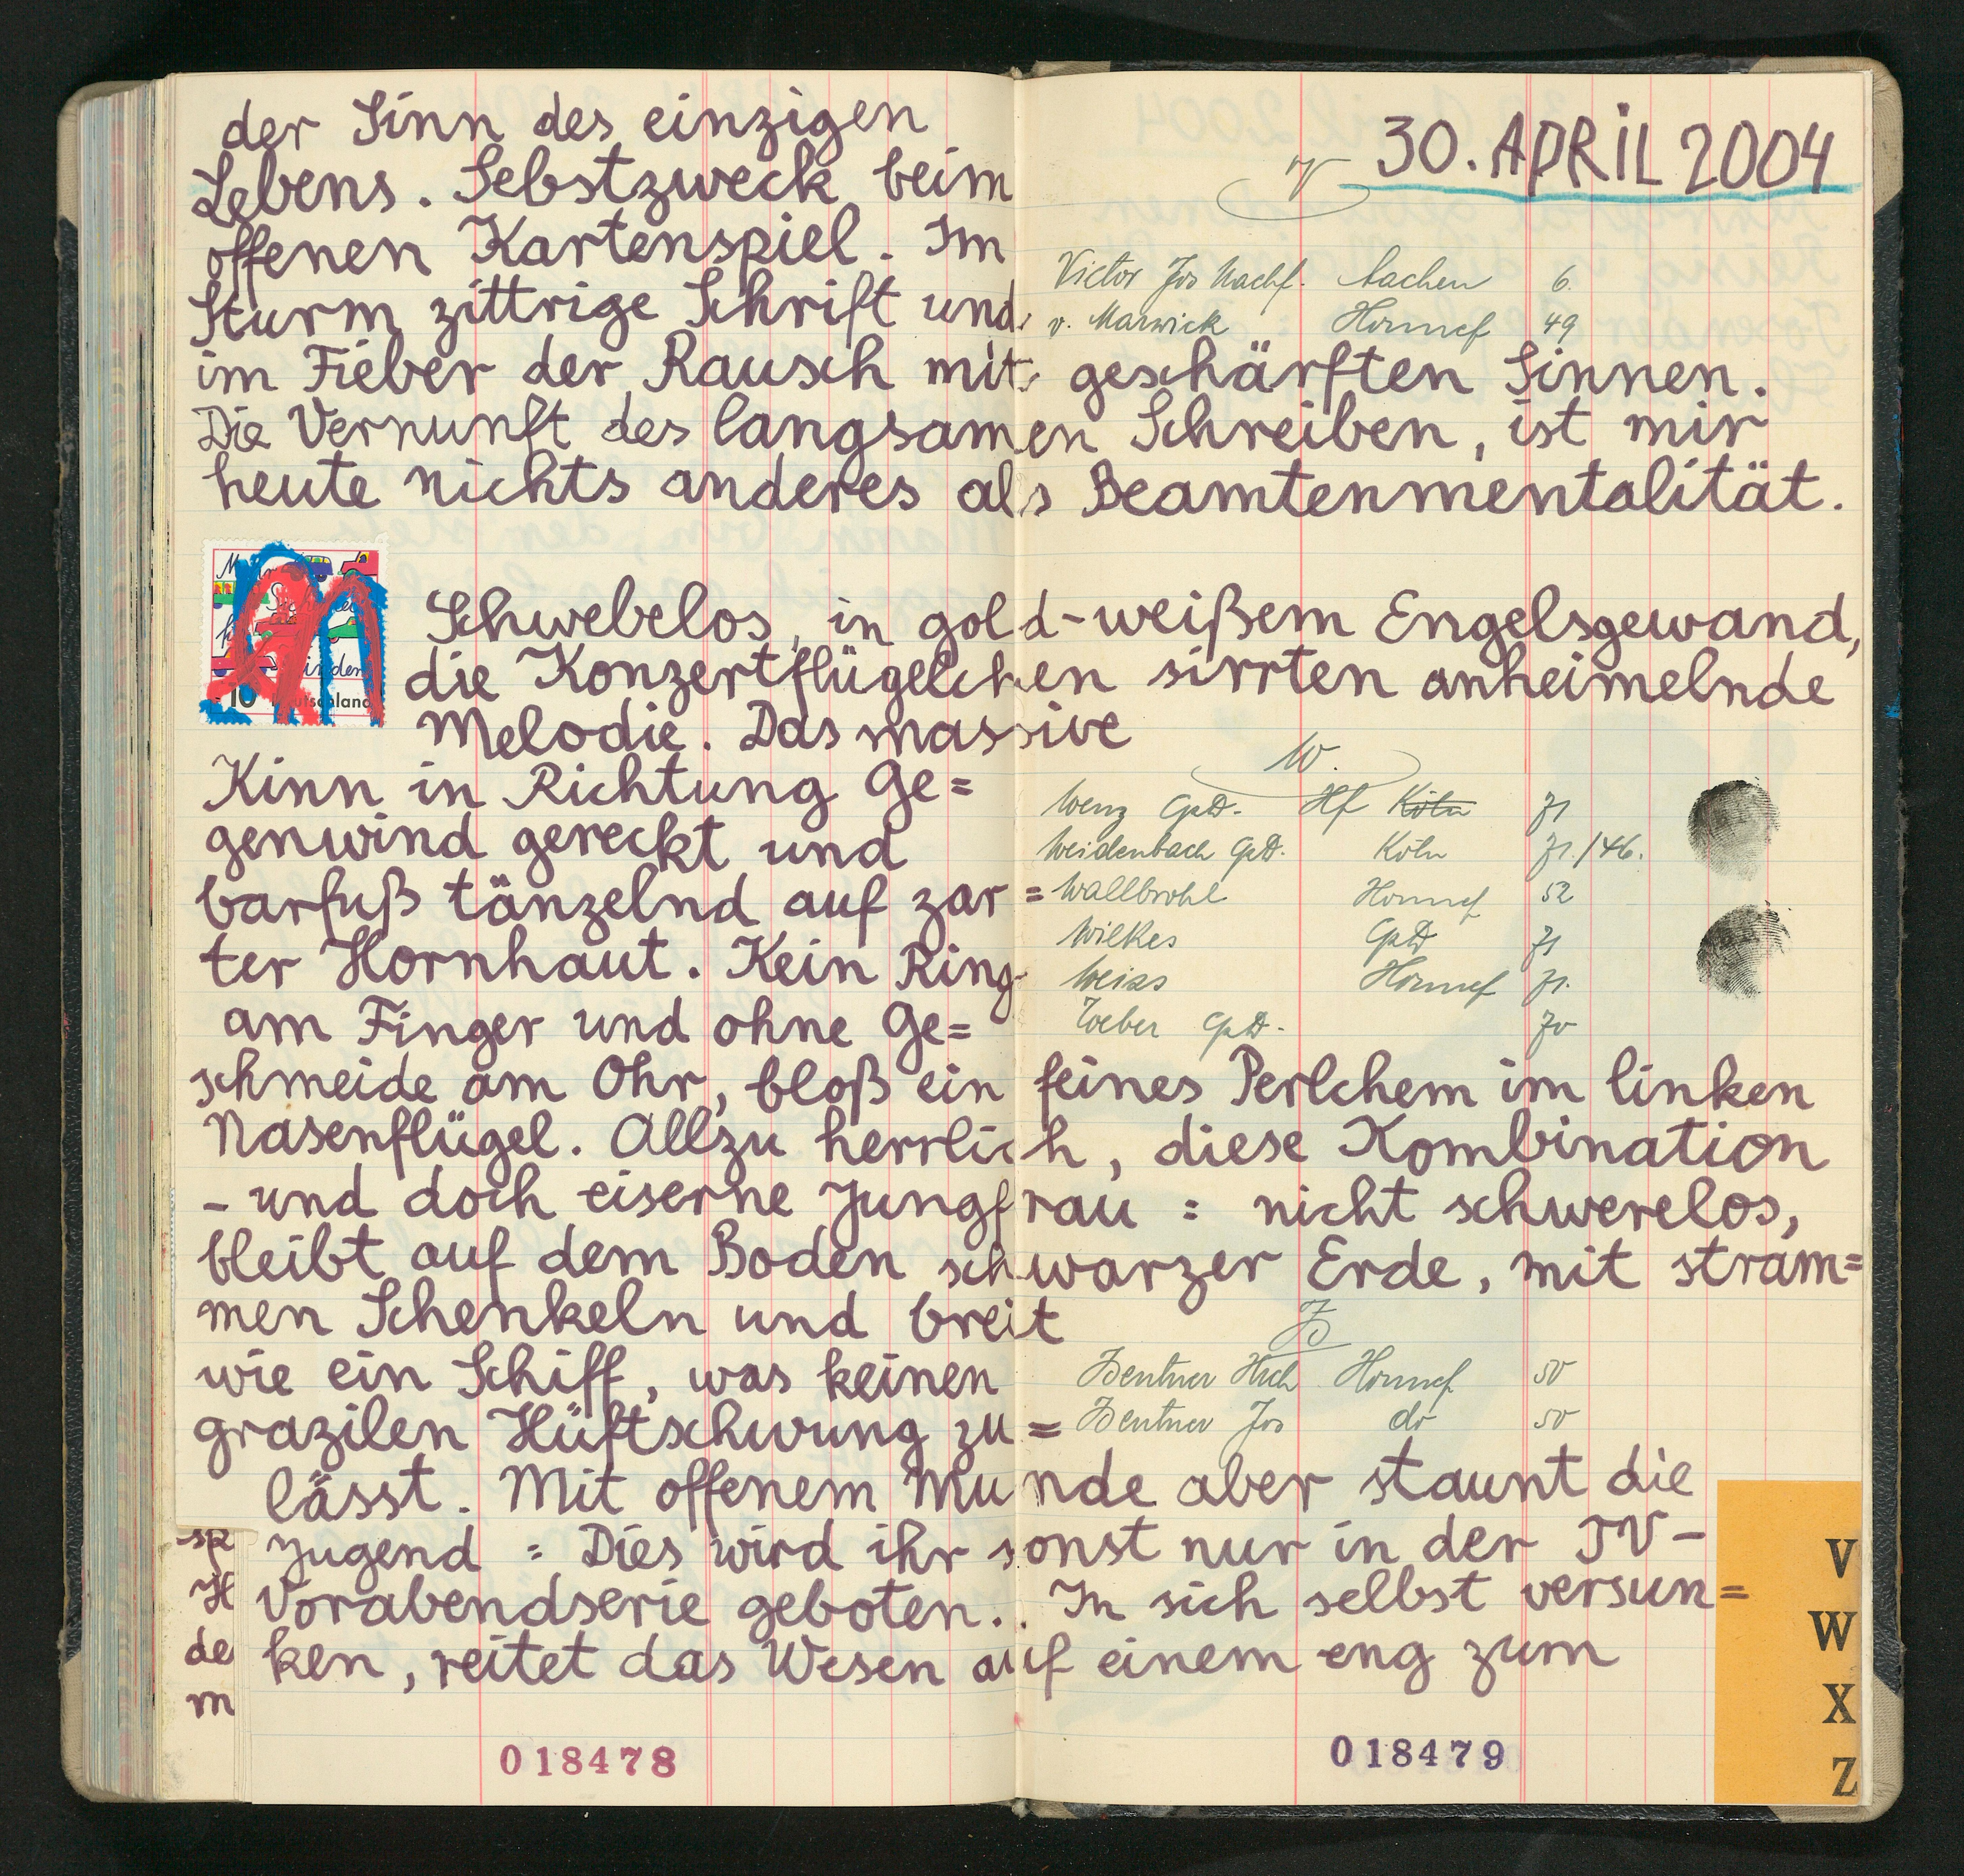 30. APRIL 2004
der Sinn des einzigen
Lebens. Sebstzweck beim
offenen Kartenspiel. Im
V
Victor Jos Nachf. Aachen 6.
Sturm zittrige Schrift und
v. Marwick Honnef 49
im Fieber der Rausch mit geschärften Sinnen.
Die Vernunft des langsamen Schreiben, ist mir
heute nichts anderes als Beamtenmentalität.
Schwebelos, in gold-weißem Engelsgewand,
die Konzertflügelchen sirrten anheimelnde
Melodie. Das massive
10 Deutschland
Kinn in Richtung Ge=
genwind gereckt und
barfuß tänzelnd auf zar=
ter Hornhaut. Kein Ring
am Finger und ohne Ge=
W.
Wenz GpD. Hf Köln 71
Weidenbach GpD. Köln 71./46.
Wallbrohl Honnef 52
Wilkes GpD 71
Weiss Honnef 71.
Weber GpD. 70
schmeide am Ohr, bloß ein feines Perlchem im linken
Nasenflügel. Allzu herrlich, diese Kombination
- und doch eiserne Jungfrau = nicht schwerelos,
bleibt auf dem Boden schwarzer Erde, mit stram=
men Schenkeln und breit
wie ein Schiff, was keinen
grazilen Hüftschwung zu=
Z
Zentner Hrch Honnef 50
Zentner Jos do 50
lässt. Mit offenem Munde aber staunt die
Jugend = Dies wird ihr sonst nur in der TV-
Vorabendserie geboten. In sich selbst versun=
ken, reitet das Wesen auf einem eng zum
sp
H
de
m
V
W
X
Z
018478
018479